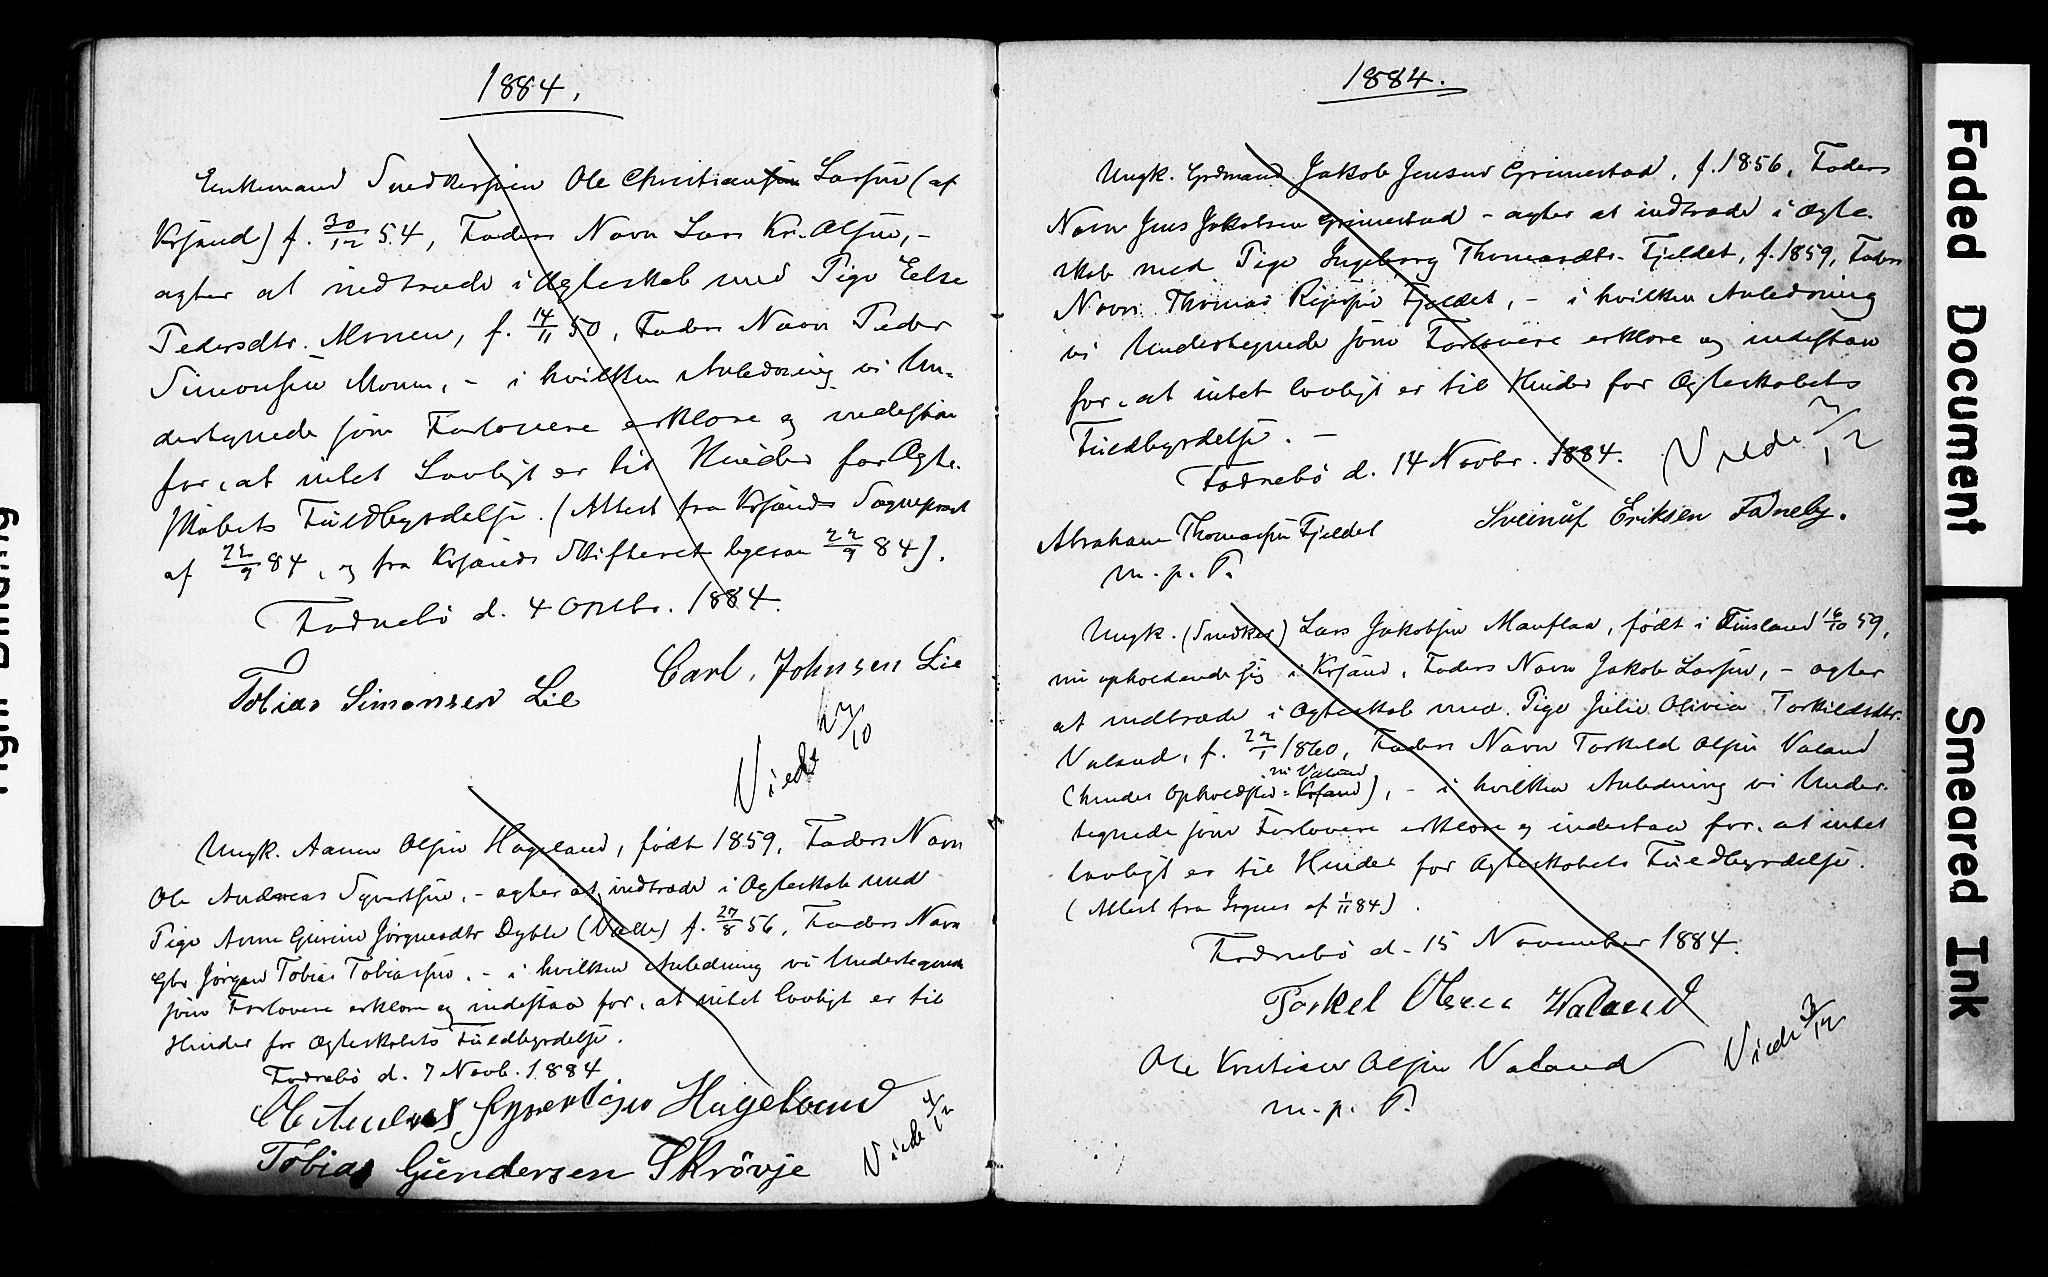 1884,
Enkemand Snedkersvend Ole Christian Larsen (af
Krsand) f. 30/12 54, Faders Navn Lars Kr. Olsen, –
agter at indtræde i Ægteskab med Pige Else
Pedersdtr. Monen, f. 14/11 50, Faders Navn Peder
Simonsen Monen, – i hvilken Anledning vi Un-
dertegnede som Forlovere erklære og indestaa
for, at intet Lovligt er til Hinder for Ægte-
skabets Fuldbyrdelse. (Attest fra Krsands Sogneprest
af 22/9 84, og fra Krsands Skifteret 22/9 84).
Fodnebø d. 4 Octbr. 1884.
Tobias Simonsen Lie
Carl. Johnsen Lie
Viede 27/10
Ungk. Aanen Olsen Hageland, født 1859, Faders Navn
Ole Andreas Syvertsen, – agter at indtræde i Ægteskab med
Pige Anne Gurine Jørgensdtr Dyble (Valle) f. 27/8 56, Faders Navn
Gbr Jørgen Tobias Tobiassen, – i hvilken Anledning vi Undertegnede
som Forlovere erklære og indestaa for, at intet lovligt er til
Hinder for Ægteskabets Fuldbyrdelse.
Fodnebø d. 7 Novb. 1884
Ole Andreas Syvertsen Hageland
Tobias Gundersen Skrövje
Viede 4/12
1884.
Ungk. Grdmand Jakob Jensen Grimestad, f. 1856, Faders
Navn Jens Jakobsen Grimestad – agter at indtræde i Ægte-
skab med Pige Ingeborg Thomasdtr. Fjeldet, f. 1859, Faders
Navn Thomas Fjeldet, – i hvilken Anledning
vi Undertegnede som Forlovere erklære og indestaa
for, at intet lovligt er til Hinder for Ægteskabets
Fuldbyrdelse. –
Fodnebø d. 14 Novbr. 1884.
Viede 3/12
Abraham Thomassen Fjeldet
m. p. P.
Sveinuf Eriksen Fodneby.
Ungk. (Snedker) Lars Jakobsen Manflaa, født i Finsland 16/10 59,
nu opholdende sig i Krsand, Faders Navn Jakob Larsen, – agter
at indtræde i Ægteskab med Pige Julie Olivia Torkildsdtr.
Valand, f. 22/1 1860, Faders Navn Torkild Olsen Valand
nu Valand
(hendes Opholdsted = Krsand), – i hvilken Anledning vi Under-
tegnede som Forlovere erklære og indestaa for, at intet
lovligt er til Hinder for Ægteskabets Fuldbyrdelse.
(Attest fra af 1/11 84).
Fodnebø d. 15 November 1884.
Torkel Olsen Valand
Ole Kristian Olsen Valand
m. p. P.
Viede 3/12
Faded Document
Smeared Ink
Tight Binding